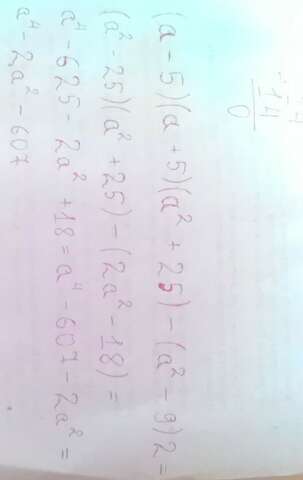 (a - 5)(a + 5)(a² + 25) - (a² - 9)2 =
(a² - 25)(a² + 25) - (2a² - 18) =
a⁴ - 625 - 2a² + 18 = a⁴ - 607 - 2a² =
a⁴ - 2a² - 607
14
0